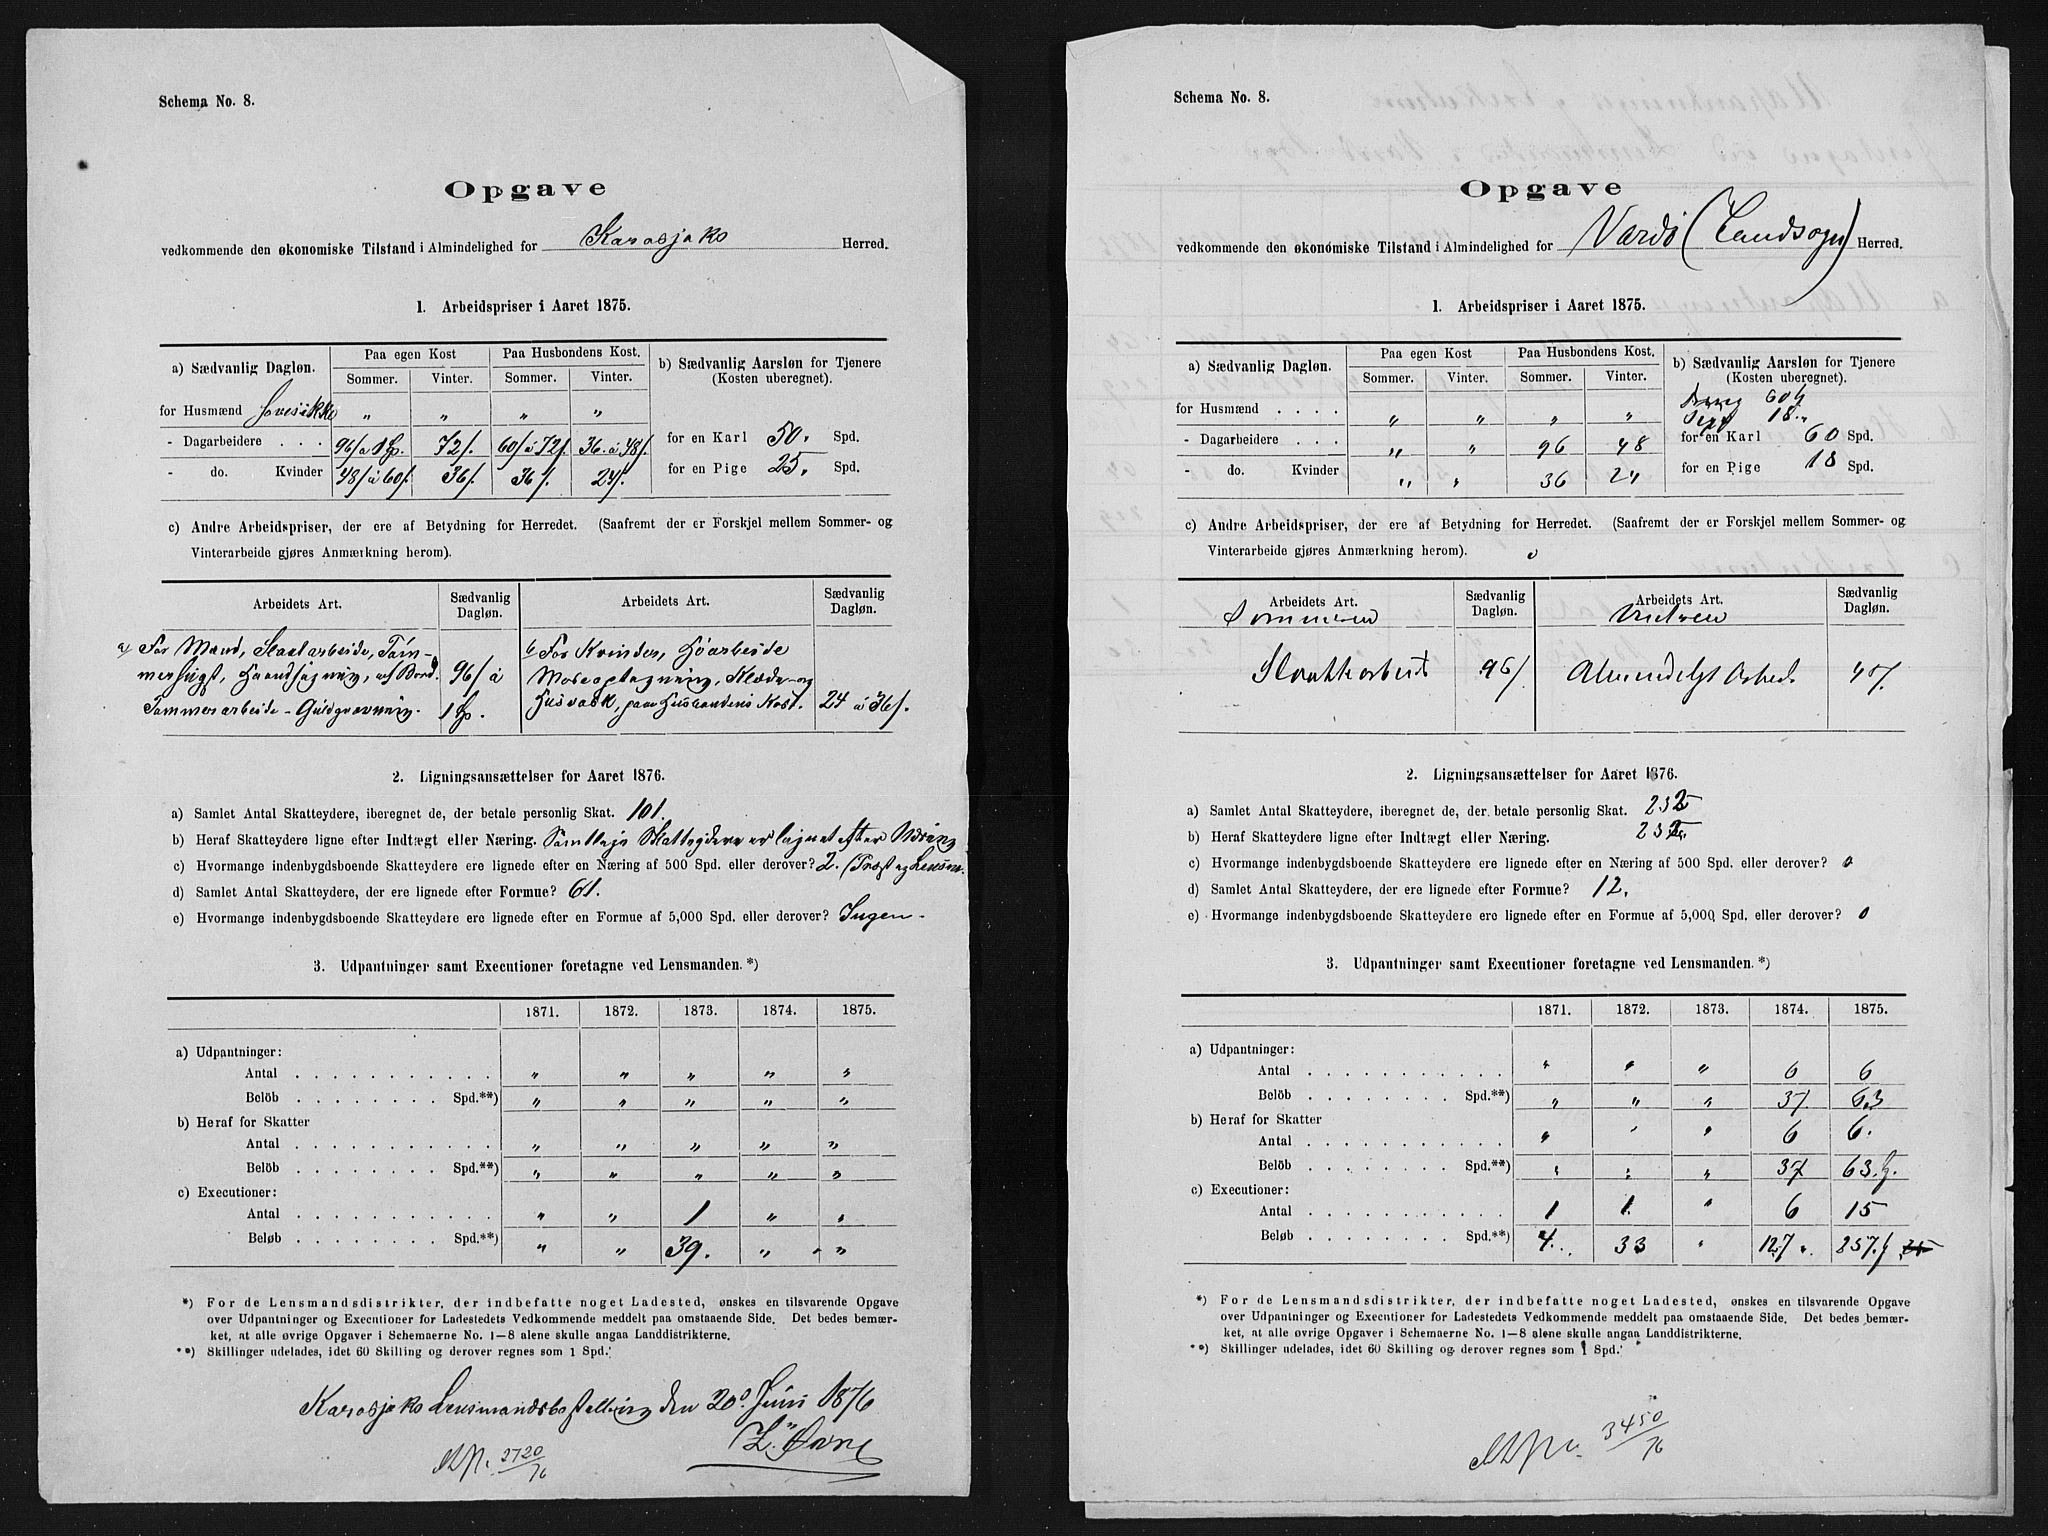 Schema No. 8.
Opgave
vedkommende den økonomiske Tilstand i Almindelighed for Karasjoks Herred.
1. Arbeidspriser i Aaret 1875.
a) Sædvanlig Dagløn. Paa egen Kost Paa Husbondens Kost. b) Sædvanlig Aarsløn for Tjenere (Kosten uberegnet).
Sommer. Vinter. Sommer. Vinter.
for Husmænd haves ikke " " " "
- Dagarbeidere . . . 96/ à 1 Sp. 72/. 60/ à 72/. 36. à 48/. for en Karl 50. Spd.
- do. Kvinder 48/ à 60/. 36/. 36/. 24/. for en Pige 25. Spd.
c) Andre Arbeidspriser, der ere af Betydning for Herredet. (Saafremt der er Forskjel mellem Sommer- og
Vinterarbeide gjøres Anmærkning herom).
Arbeidets Art. Sædvanlig Dagløn. Arbeidets Art. Sædvanlig Dagløn.
a/ For Mænd, Slaatarbeide, Tøm- b/ For Kvinder, Høarbeide
merhugst, Haandsagning af Bord. 96/ à Moseoptagning, Klæde- og
Tømmerarbeide - Guldgravning. 1 Sp. Husvask, paa Husbondens Kost. 24 à 36/.
2. Ligningsansættelser for Aaret 1876.
a) Samlet Antal Skatteydere, iberegnet de, der betale personlig Skat. 101.
b) Heraf Skatteydere ligne efter Indtægt eller Næring. Samtlige Skatteydere er lignet efter Næring
c) Hvormange indenbygdsboende Skatteydere ere lignede efter en Næring af 500 Spd. eller derover? 2. (Præst og Lensm.
d) Samlet Antal Skatteydere, der ere lignede efter Formue? 61.
e) Hvormange indenbygdsboende Skatteydere ere lignede efter en Formue af 5,000 Spd. eller derover? Ingen -
3. Udpantninger samt Executioner foretagne ved Lensmanden.*)
1871. 1872. 1873. 1874. 1875.
a) Udpantninger:
Antal . . . . . . . . . . . " " " " "
Belöb . . . . . . . . Spd.**) " " " " "
b) Heraf for Skatter
Antal . . . . . . . . . . . " " " " "
Belöb . . . . . . . . Spd.**) " " " " "
c) Executioner:
Antal . . . . . . . . . . . " " 1 " "
Beløb . . . . . . . . Spd.**) " " 39. " "
*) For de Lensmandsdistrikter, der indbefatte noget Ladested, ønskes en tilsvarende Opgave
over Udpantninger og Executioner for Ladestedets Vedkommende meddelt paa omstaaende Side. Det bedes bemær-
ket, at alle øvrige Opgaver i Schemaerne No. 1—8 alene skulle angaa Landdistrikterne.
**) Skillinger udelades, idet 60 Skilling og derover regnes som 1 Spd.
Karasjoks Lensmandsbestilling den 20. Juni 1876
3720/76
Schema No. 8.
Opgave
vedkommende den økonomiske Tilstand i Almindelighed for Vardø (Landsogn) Herred.
1. Arbeidspriser i Aaret 1875.
a) Sædvanlig Dagløn. Paa egen Kost Paa Husbondens Kost. b) Sædvanlig Aarsløn for Tjenere (Kosten uberegnet).
Sommer. Vinter. Sommer. Vinter. Dreng 60
for Husmænd . . . . " " " " Pige 18
- Dagarbeidere . . . " " 96 48 for en Karl 60 Spd.
- do. Kvinder " " 36 24 for en Pige 18 Spd.
c) Andre Arbeidspriser, der ere af Betydning for Herredet. (Saafremt der er Forskjel mellem Sommer- og
Vinterarbeide gjøres Anmærkning herom).
Arbeidets Art. Sædvanlig Dagløn. Arbeidets Art. Sædvanlig Dagløn.
Sommeren Vintren
Slaatterbeide 96/ Almindeligt Arbeid
2. Ligningsansættelser for Aaret 1876.
a) Samlet Antal Skatteydere, iberegnet de, der betale personlig Skat. 232
b) Heraf Skatteydere ligne efter Indtægt eller Næring. 232.
c) Hvormange indenbygdsboende Skatteydere ere lignede efter en Næring af 500 Spd. eller derover? 0
d) Samlet Antal Skatteydere, der ere lignede efter Formue? 12.
e) Hvormange indenbygdsboende Skatteydere ere lignede efter en Formue af 5,000 Spd. eller derover? 0
3. Udpantninger samt Executioner foretagne ved Lensmanden.*)
1871. 1872. 1873. 1874. 1875.
a) Udpantninger:
Antal . . . . . . . . . . . " " " 6 6
Belöb . . . . . . . . Spd.**) " " " 37. 63
b) Heraf for Skatter
Antal . . . . . . . . . . . " " " 6 6.
Belöb . . . . . . . . Spd.**) " " " 37 63.
c) Executioner:
Antal . . . . . . . . . . . 1 1 " 6 15
Beløb . . . . . . . . Spd.**) 4. 33 " 127 257.
*) For de Lensmandsdistrikter, der indbefatte noget Ladested, ønskes en tilsvarende Opgave
over Udpantninger og Executioner for Ladestedets Vedkommende meddelt paa omstaaende Side. Det bedes bemær-
ket, at alle øvrige Opgaver i Schemaerne No. 1—8 alene skulle angaa Landdistrikterne.
**) Skillinger udelades, idet 60 Skilling og derover regnes som 1 Spd.
3450/76